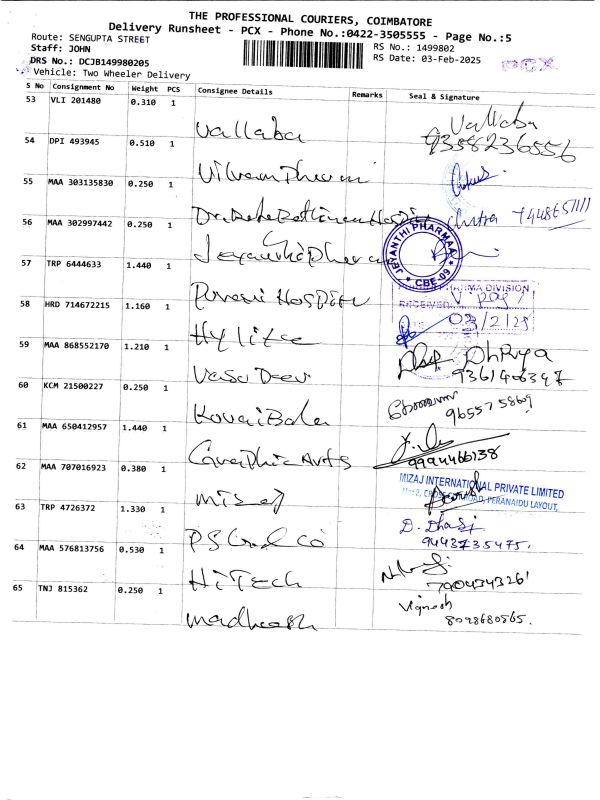 THE PROFESSIONAL COURIERS, COIMBATORE
Delivery Runsheet - PCX - Phone No.:0422-3505555 - Page No.:5
Route: SENGUPTA STREET
RS No.: 1499802
Staff: JOHN
RS Date: 03-Feb-2025
DRS No.: DCJB149980205
PCX
Vehicle: Two Wheeler Delivery
S No Consignment No Weight PCS Consignee Details Remarks Seal & Signature
53 VLI 201480 0.310 1
vallaba Vallaba
9358236556
54 DPI 493945 0.510 1
55 MAA 303135830 0.250 1
Chitra
56 MAA 302997442 0.250 1
JEYANTHI PHARMAA
CBE-09
57 TRP 6444633 1.440 1
Hospital
PHARMA DIVISION
RECEIVED
58 HRD 714672215 1.160 1
03/2/25
59 MAA 868552170 1.210 1
Vasu Deev DhRiya
9361406347
60 KCM 21500227 0.250 1
Kovai Bala
9655758669
61 MAA 650412957 1.440 1
Graphic Arts
9994466138
62 MAA 707016923 0.380 1
MIZAJ INTERNATIONAL PRIVATE LIMITED
CROSS CUT ROAD, PERANAIDU LAYOUT,
mizaj
63 TRP 4726372 1.330 1
9443735475.
64 MAA 576813756 0.530 1
HiTech
7904343261
65 TNJ 815362 0.250 1
Vignesh
8098680565.
madhessh